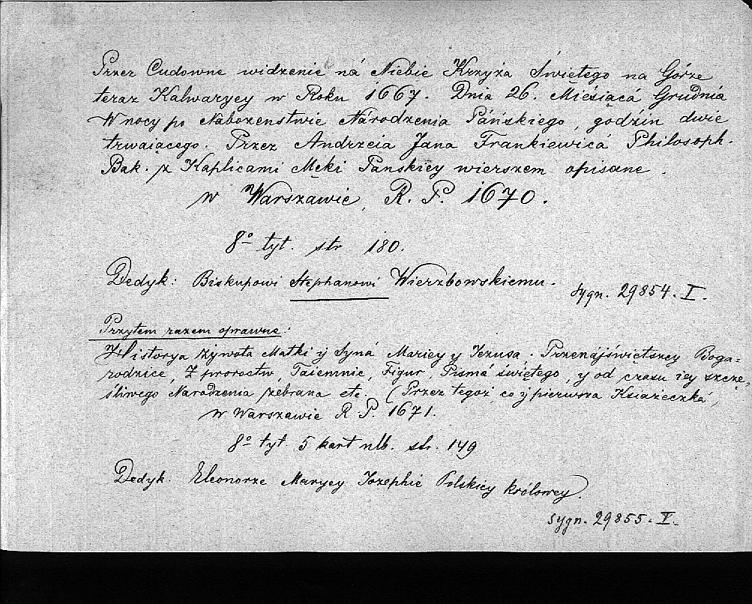 Przez Cudowne widzenie ná Niebie Krzyża Świętego na Górze
teraz Kalwaryey w Roku 1667. Dnia 26. Miesiącá Grudnia
W nocy po Nabożenstwie Národzenia Páńskiego, godzin dwie
trwaiącego. Przez Andrzeia Jana Frankiewica Philosoph.
Bak. z Kaplicami Męki Panskiey wierszem opisane.
w Warszáwie, R. P. 1670.
8º tyt. str 180.
Dedyk: Biskupowi Stephanowi Wierzbowskiemu.
sygn. 29854. I.
Przytem razem oprawne:
Historya żywota Matki ÿ Syná Mariey y Iezusa. Przenáyświetszey Boga-
rodzice, Z proroctw Taiemnic, Figur, Pismá świętego, y od czasu iey szczę-
śliwego Narodzenia zebrana etc. (Przez tegoż, co ÿ pierwsza Ksiażeczká,
w Warszawie R. P. 1671.
8º tyt. 5 kart nlb. str. 149
Dedyk. Eleonorze Maryey Iozephie Polskiey królowey.
sygn. 29855. I.